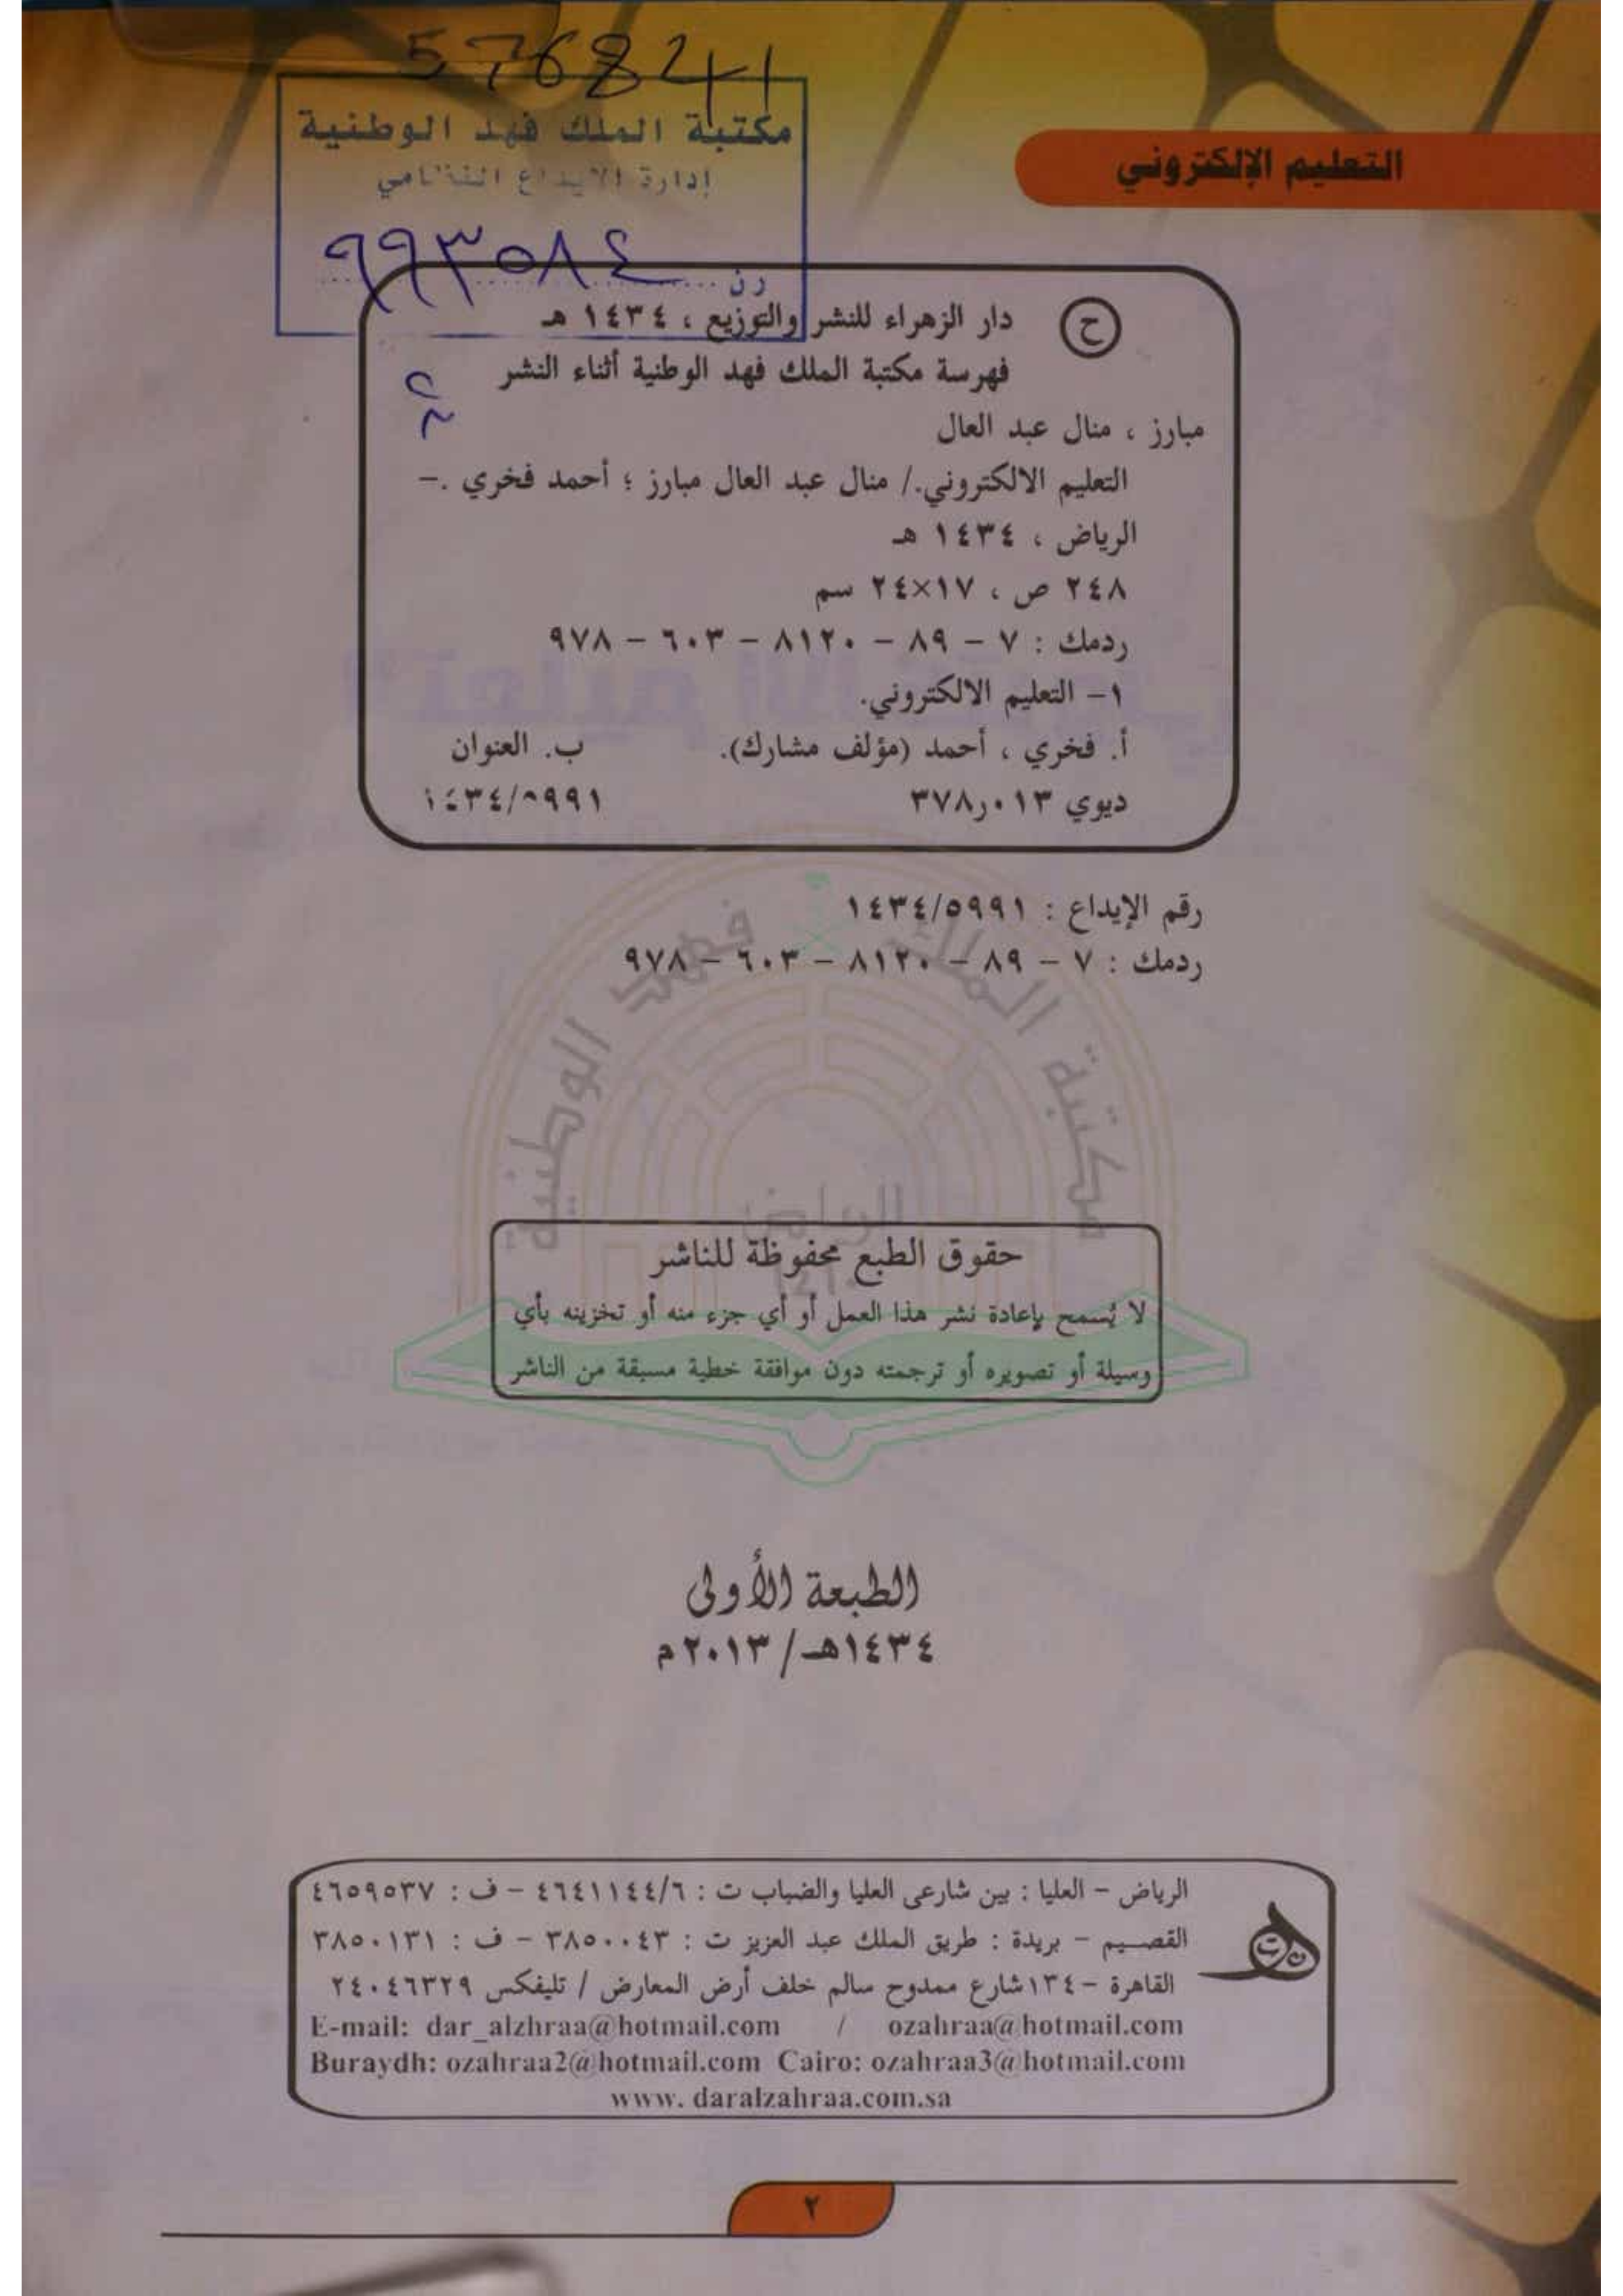 576841
مكتبة الملك فهد الوطنية
إدارة الايداع النظامي
رن ٩٩٣٥٨٤
التعليم الإلكتروني
ح
دار الزهراء للنشر والتوزيع ، ١٤٣٤ هـ
فهرسة مكتبة الملك فهد الوطنية أثناء النشر
مبارز ، منال عبد العال
التعليم الالكتروني./ منال عبد العال مبارز ؛ أحمد فخري .–
الرياض ، ١٤٣٤ هـ
٢٤٨ ص ، ١٧×٢٤ سم
ردمك : ٧ – ٨٩ – ٨١٢٠ – ٦٠٣ – ٩٧٨
١– التعليم الالكتروني.
أ. فخري ، أحمد (مؤلف مشارك). ب. العنوان
ديوي ٣٧٨٫٠١٣ ١٤٣٤/٥٩٩١
رقم الإيداع : ١٤٣٤/٥٩٩١
ردمك : ٧ – ٨٩ – ٨١٢٠ – ٦٠٣ – ٩٧٨
مكتبة الملك فهد الوطنية
الرياض
حقوق الطبع محفوظة للناشر
لا يُسمح بإعادة نشر هذا العمل أو أي جزء منه أو تخزينه بأي
وسيلة أو تصويره أو ترجمته دون موافقة خطية مسبقة من الناشر
الطبعة الأولى
١٤٣٤هـ/٢٠١٣م
الرياض – العليا : بين شارعى العليا والضباب ت : ٤٦٤١١٤٤/٦ – ف : ٤٦٥٩٥٣٧
القصيم – بريدة : طريق الملك عبد العزيز ت : ٣٨٥٠٠٤٣ – ف : ٣٨٥٠١٣١
القاهرة –١٣٤شارع ممدوح سالم خلف أرض المعارض / تليفكس ٢٤٠٤٦٣٢٩
E-mail: dar_alzhraa@hotmail.com / ozahraa@hotmail.com
Buraydh: ozahraa2@hotmail.com Cairo: ozahraa3@hotmail.com
www. daralzahraa.com.sa
٢